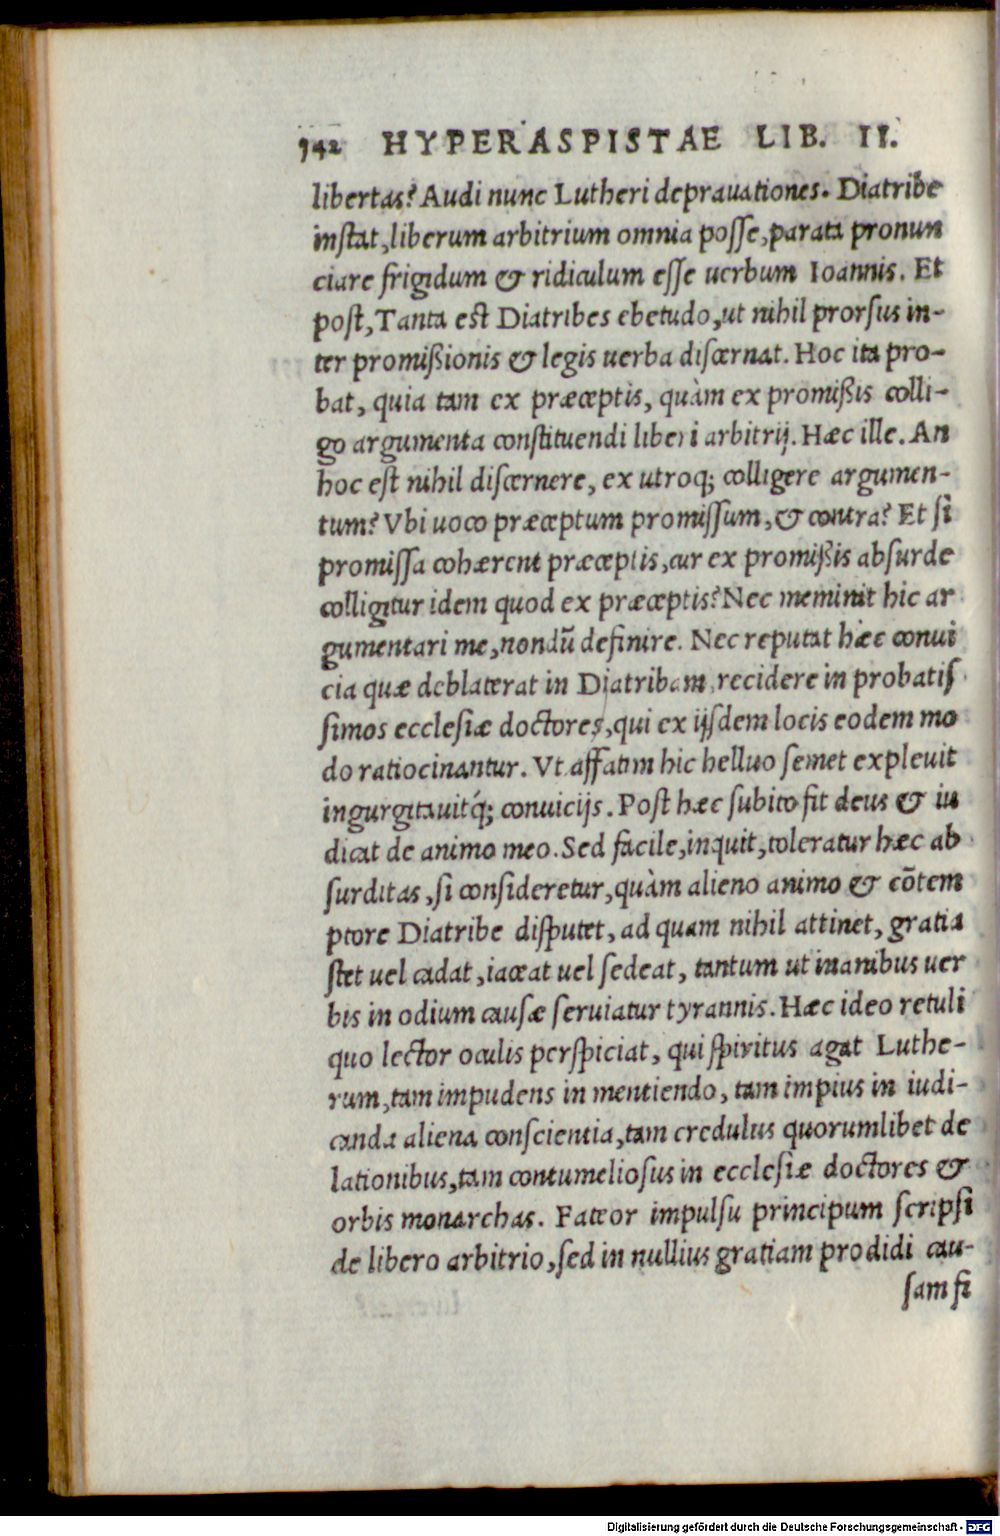 342 HYPERASPISTAE LIB. II.
libertas? Audi nunc Lutheri deprauationes. Diatribe
instat, liberum arbitrium omnia posse, parata pronun
ciare frigidum & ridiculum esse uerbum Ioannis. Et
post, Tanta est Diatribes ebetudo, ut nihil prorsus in-
ter promißionis & legis uerba discernat. Hoc ita pro-
bat, quia tam ex præceptis, quàm ex promißis colli-
go argumenta constituendi liberi arbitrij. Hæc ille. An
hoc est nihil discernere, ex utroq; colligere argumen-
tum? Vbi uoco præceptum promissum, & contra? Et si
promissa cohærent præceptis, cur ex promißis absurde
colligitur idem quod ex præceptis? Nec meminit hic ar
gumentari me, nondũ definire. Nec reputat hæc conui
cia quæ deblaterat in Diatribam, recidere in probatis
simos ecclesiæ doctores, qui ex ijsdem locis eodem mo
do ratiocinantur. Vt affatim hic helluo semet expleuit
ingurgitauitq́; conuicijs. Post hæc subito fit deus & iu
dicat de animo meo. Sed facile, inquit, toleratur hæc ab
surditas, si consideretur, quàm alieno animo & cõtem
ptore Diatribe disputet, ad quam nihil attinet, gratia
stet uel cadat, iaceat uel sedeat, tantum ut inanibus uer
bis in odium causæ seruiatur tyrannis. Hæc ideo retuli
quo lector oculis perspiciat, qui spiritus agat Luthe-
rum, tam impudens in mentiendo, tam impius in iudi-
canda aliena conscientia, tam credulus quorumlibet de
lationibus, tam contumeliosus in ecclesiæ doctores &
orbis monarchas. Fateor impulsu principum scripsi
de libero arbitrio, sed in nullius gratiam prodidi cau-
sam fi
Digitalisierung gefördert durch die Deutsche Forschungsgemeinschaft - DFG